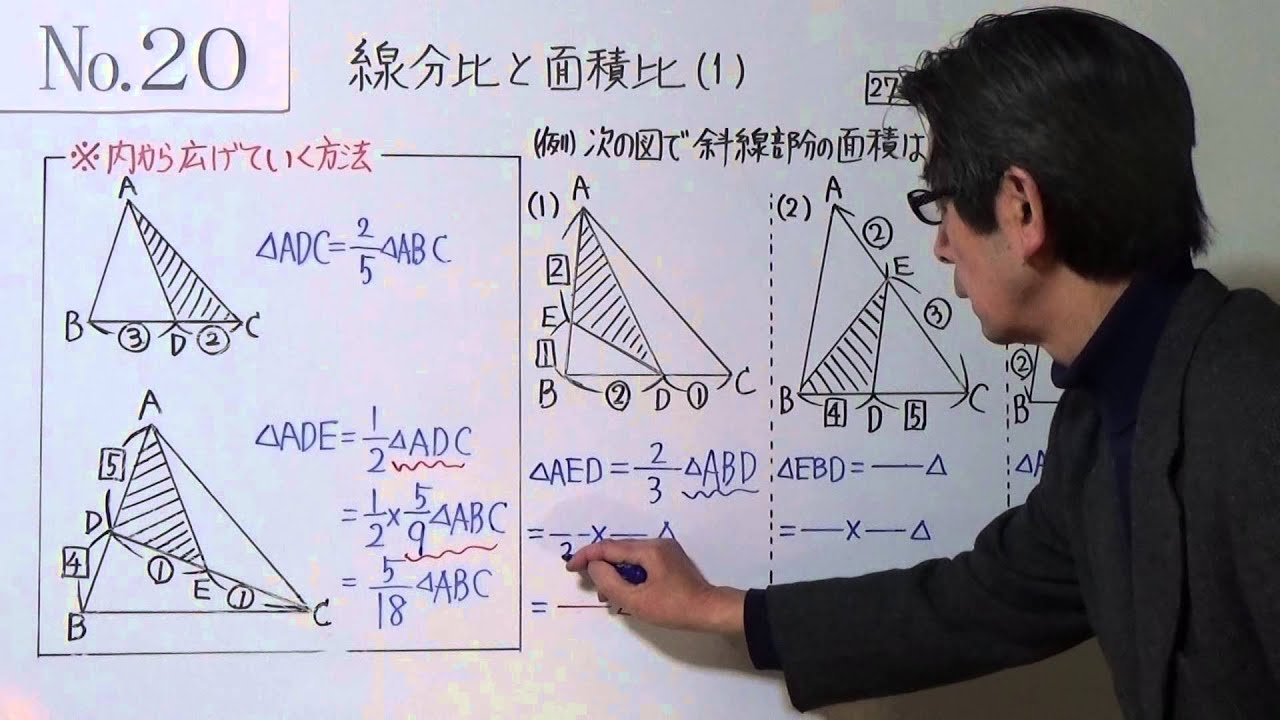 No.20
線分比と面積比(1)
27
※内から広げていく方法
A
B ③ D ② C
△ADC=2/5△ABC
A
5
D
4
① E ①
B C
△ADE=1/2△ADC
=1/2×5/9△ABC
=5/18△ABC
(例) 次の図で斜線部分の面積は
(1)
A
2
E
1
B ② D ① C
△AED=2/3△ABD
=—/2×—△
=—
(2)
A
②
E
③
B 4 D 5 C
△EBD=—△
=—×—△
②
B
△A
=